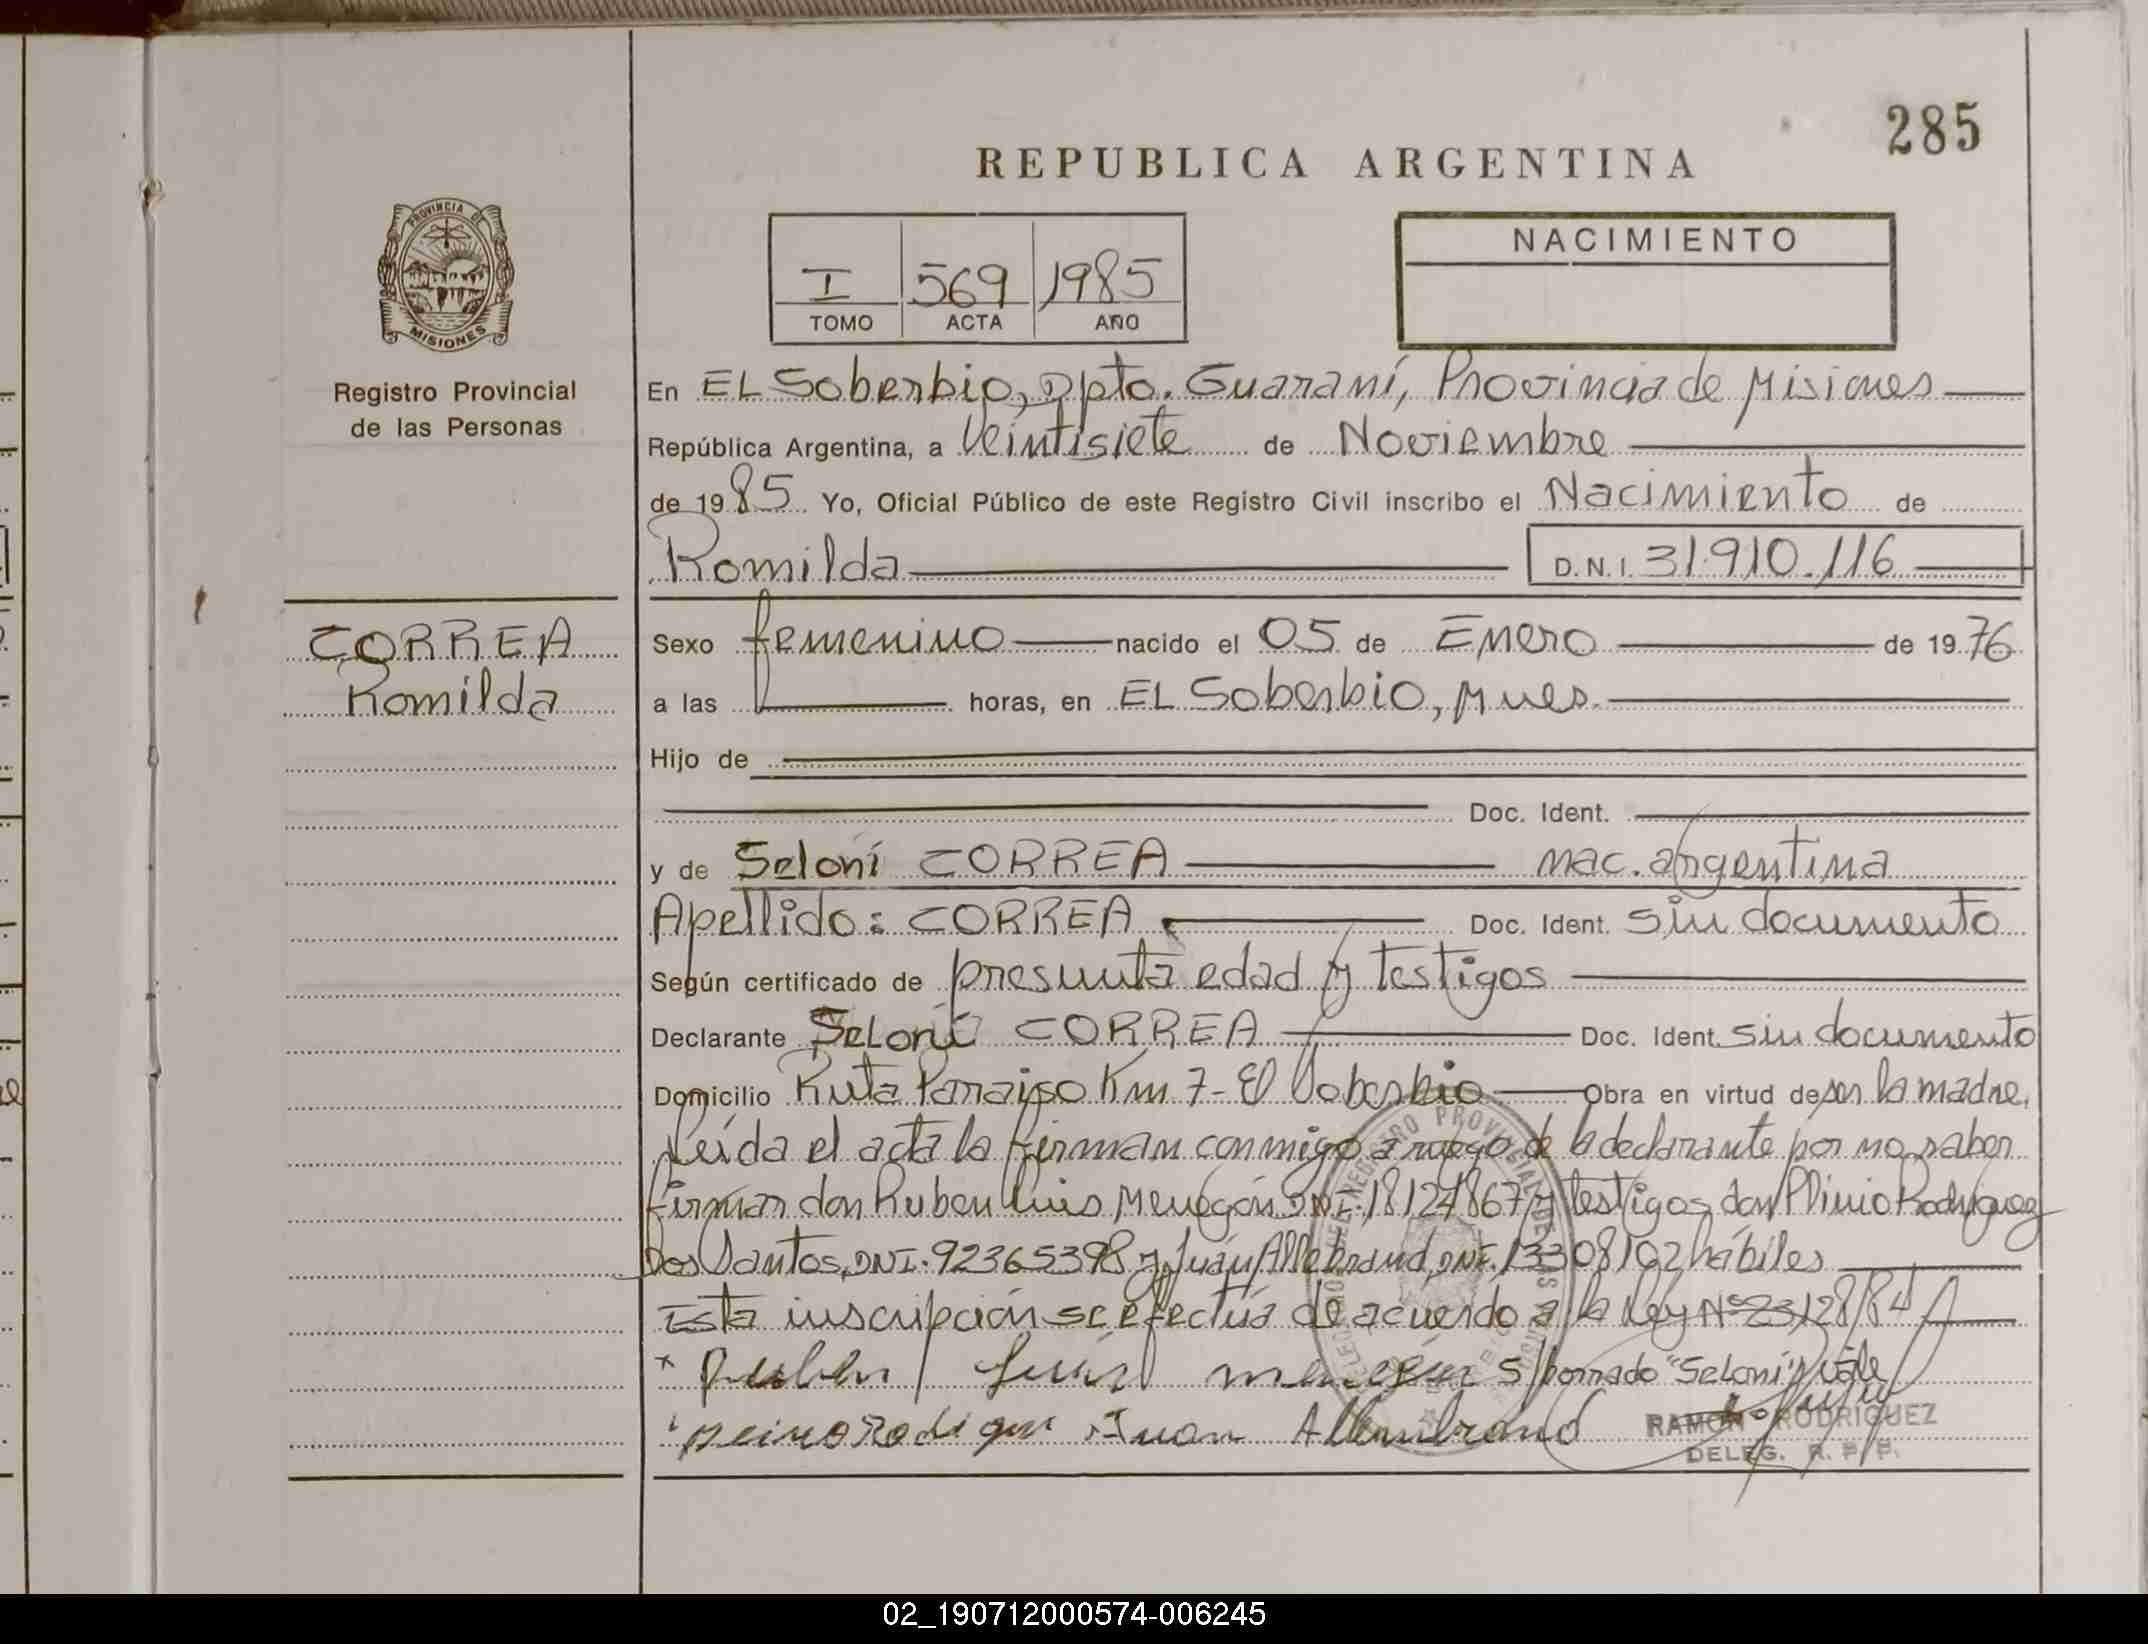 285
REPUBLICA ARGENTINA
PROVINCIA DE
MISIONES
I 569 1985
TOMO ACTA AÑO
NACIMIENTO
Registro Provincial
de las Personas
CORREA
Romilda
En EL Soberbio, Dpto. Guaraní, Provincia de Misiones
República Argentina, a Veintisiete de Noviembre
de 1985 Yo, Oficial Público de este Registro Civil inscribo el Nacimiento de
Romilda D.N.I. 31.910.116
Sexo femenino nacido el 05 de Enero de 1976
a las horas, en EL Soberbio, Mnes.
Hijo de
Doc. Ident.
y de Seloní CORREA nac. argentina
Apellido: CORREA Doc. Ident. sin documento
Según certificado de presunta edad y testigos
Declarante Seloní CORREA Doc. Ident. sin documento
Domicilio Ruta Paraiso Km 7 - El Soberbio Obra en virtud de ser la madre,
Leída el acta la firman conmigo a ruego de la declarante por no saber
firmar don Ruben Luis Menegón DNI. 18124867 y testigos don Plinio Rodriguez
Dos Santos, DNI. 92365398 y Juan Allebrand, DNI. 13308102 hábiles
Esta inscripción se efectúa de acuerdo a la Ley Nº 23128/84
Ruben Luis menegon S/borrado "Seloní" Vale
Juan Allembrand
RAMON RODRIGUEZ
DELEG. R. P. P.
02_190712000574-006245